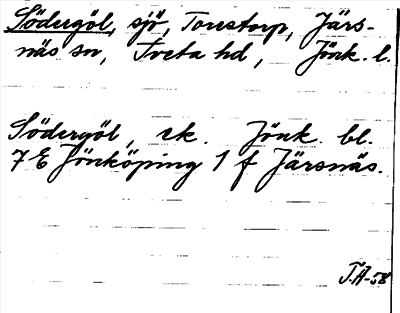 Södergöl, sjö, Tonstorp, Järs-
näs sn, Tveta hd, Jönk. l.
Södergöl, ek. Jönk. bl.
7 E Jönköping 1 f Järsnäs.
T.Ä-58